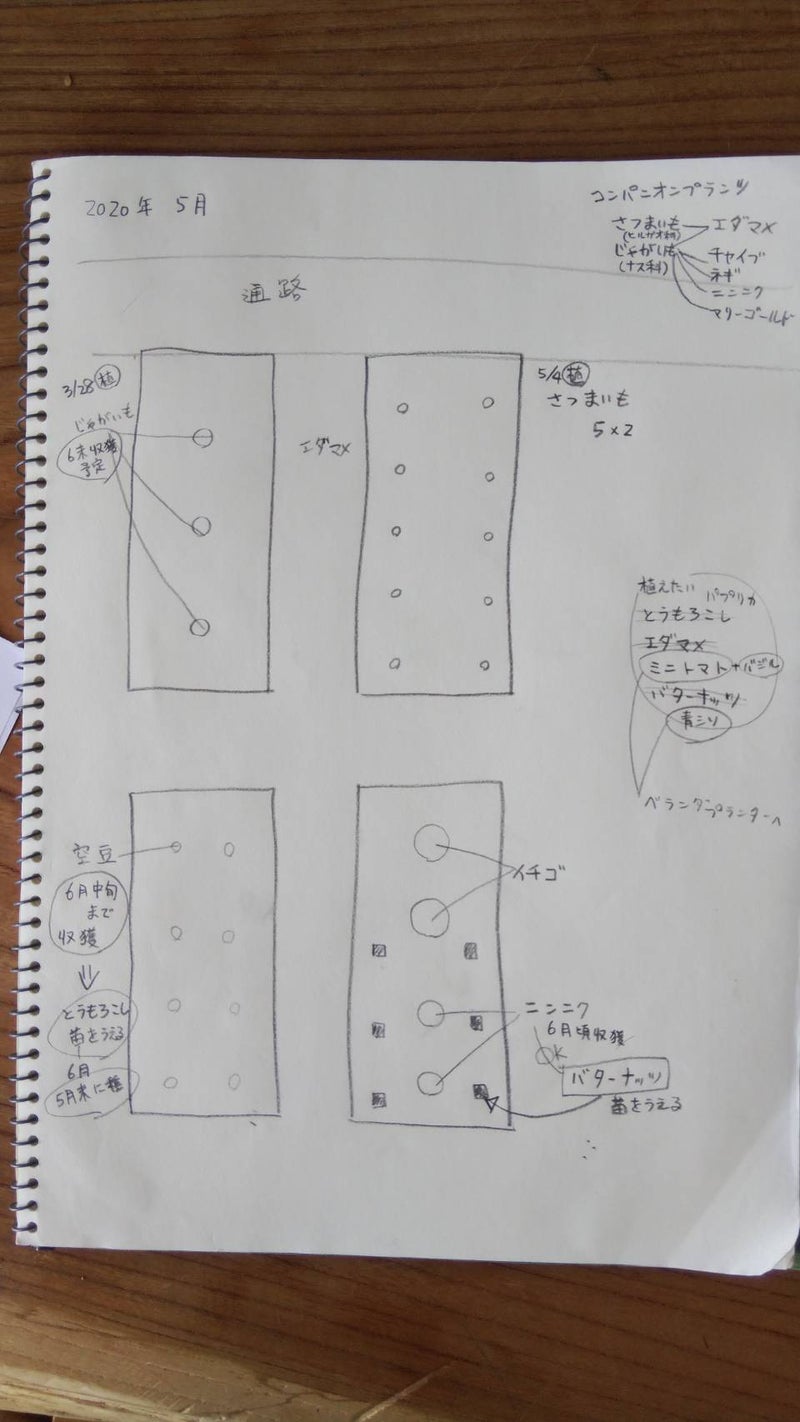 2020年 5月
コンパニオンプランツ
さつまいも エダマメ
(ヒルガオ科)
じゃがいも チャイブ
(ナス科) ネギ
ニンニク
マリーゴールド
通路
3/28 植
じゃがいも
6末収獲
予定
エダマメ
5/4 植
さつまいも
5×2
植えたい パプリカ
とうもろこし
エダマメ
ミニトマト+バジル
バターナッツ
青シソ
ベランダプランターへ
空豆
6月中旬
まで
収獲
⇓
とうもろこし
苗をうえる
6月
5月末に種
イチゴ
ニンニク
6月頃収獲
OK
バターナッツ
苗をうえる